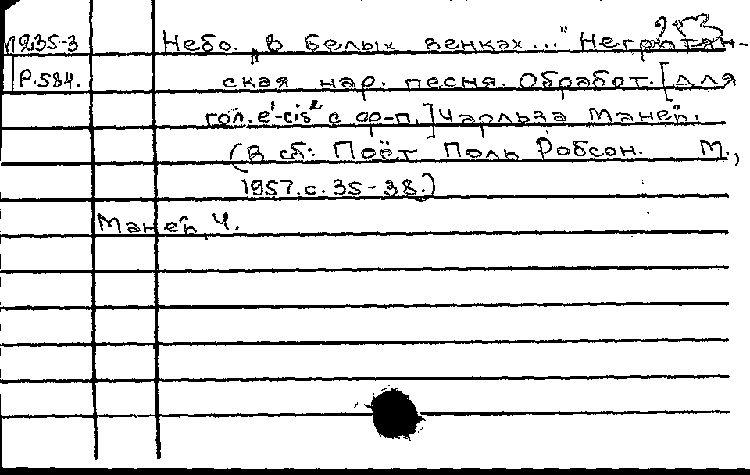 М235-3 Небо „в белых венках..." Негритян-
Р.584. ская нар. песня. Обработ. [для
гол. e¹-cis² с ф-п.] Чарльза Маней.
(В сб: Поёт Поль Робсон. М.,
1957. с. 35-38.)
Маней, Ч.